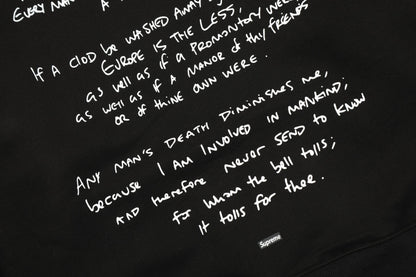 EVERY MAN
A
IF A CLOD BE WASHED AWAY
EUROPE IS THE LESS,
as well as if a PROMONTORY WE
as well as if a MANOR of thy FRIENDS
OR of THINE OWN WERE.
ANY MAN'S DEATH DIMINISHES me,
because I AM INVOLVED IN MANKIND;
AND therefore never SEND to KNOW
for whom the bell tolls;
It tolls for thee.
Supreme